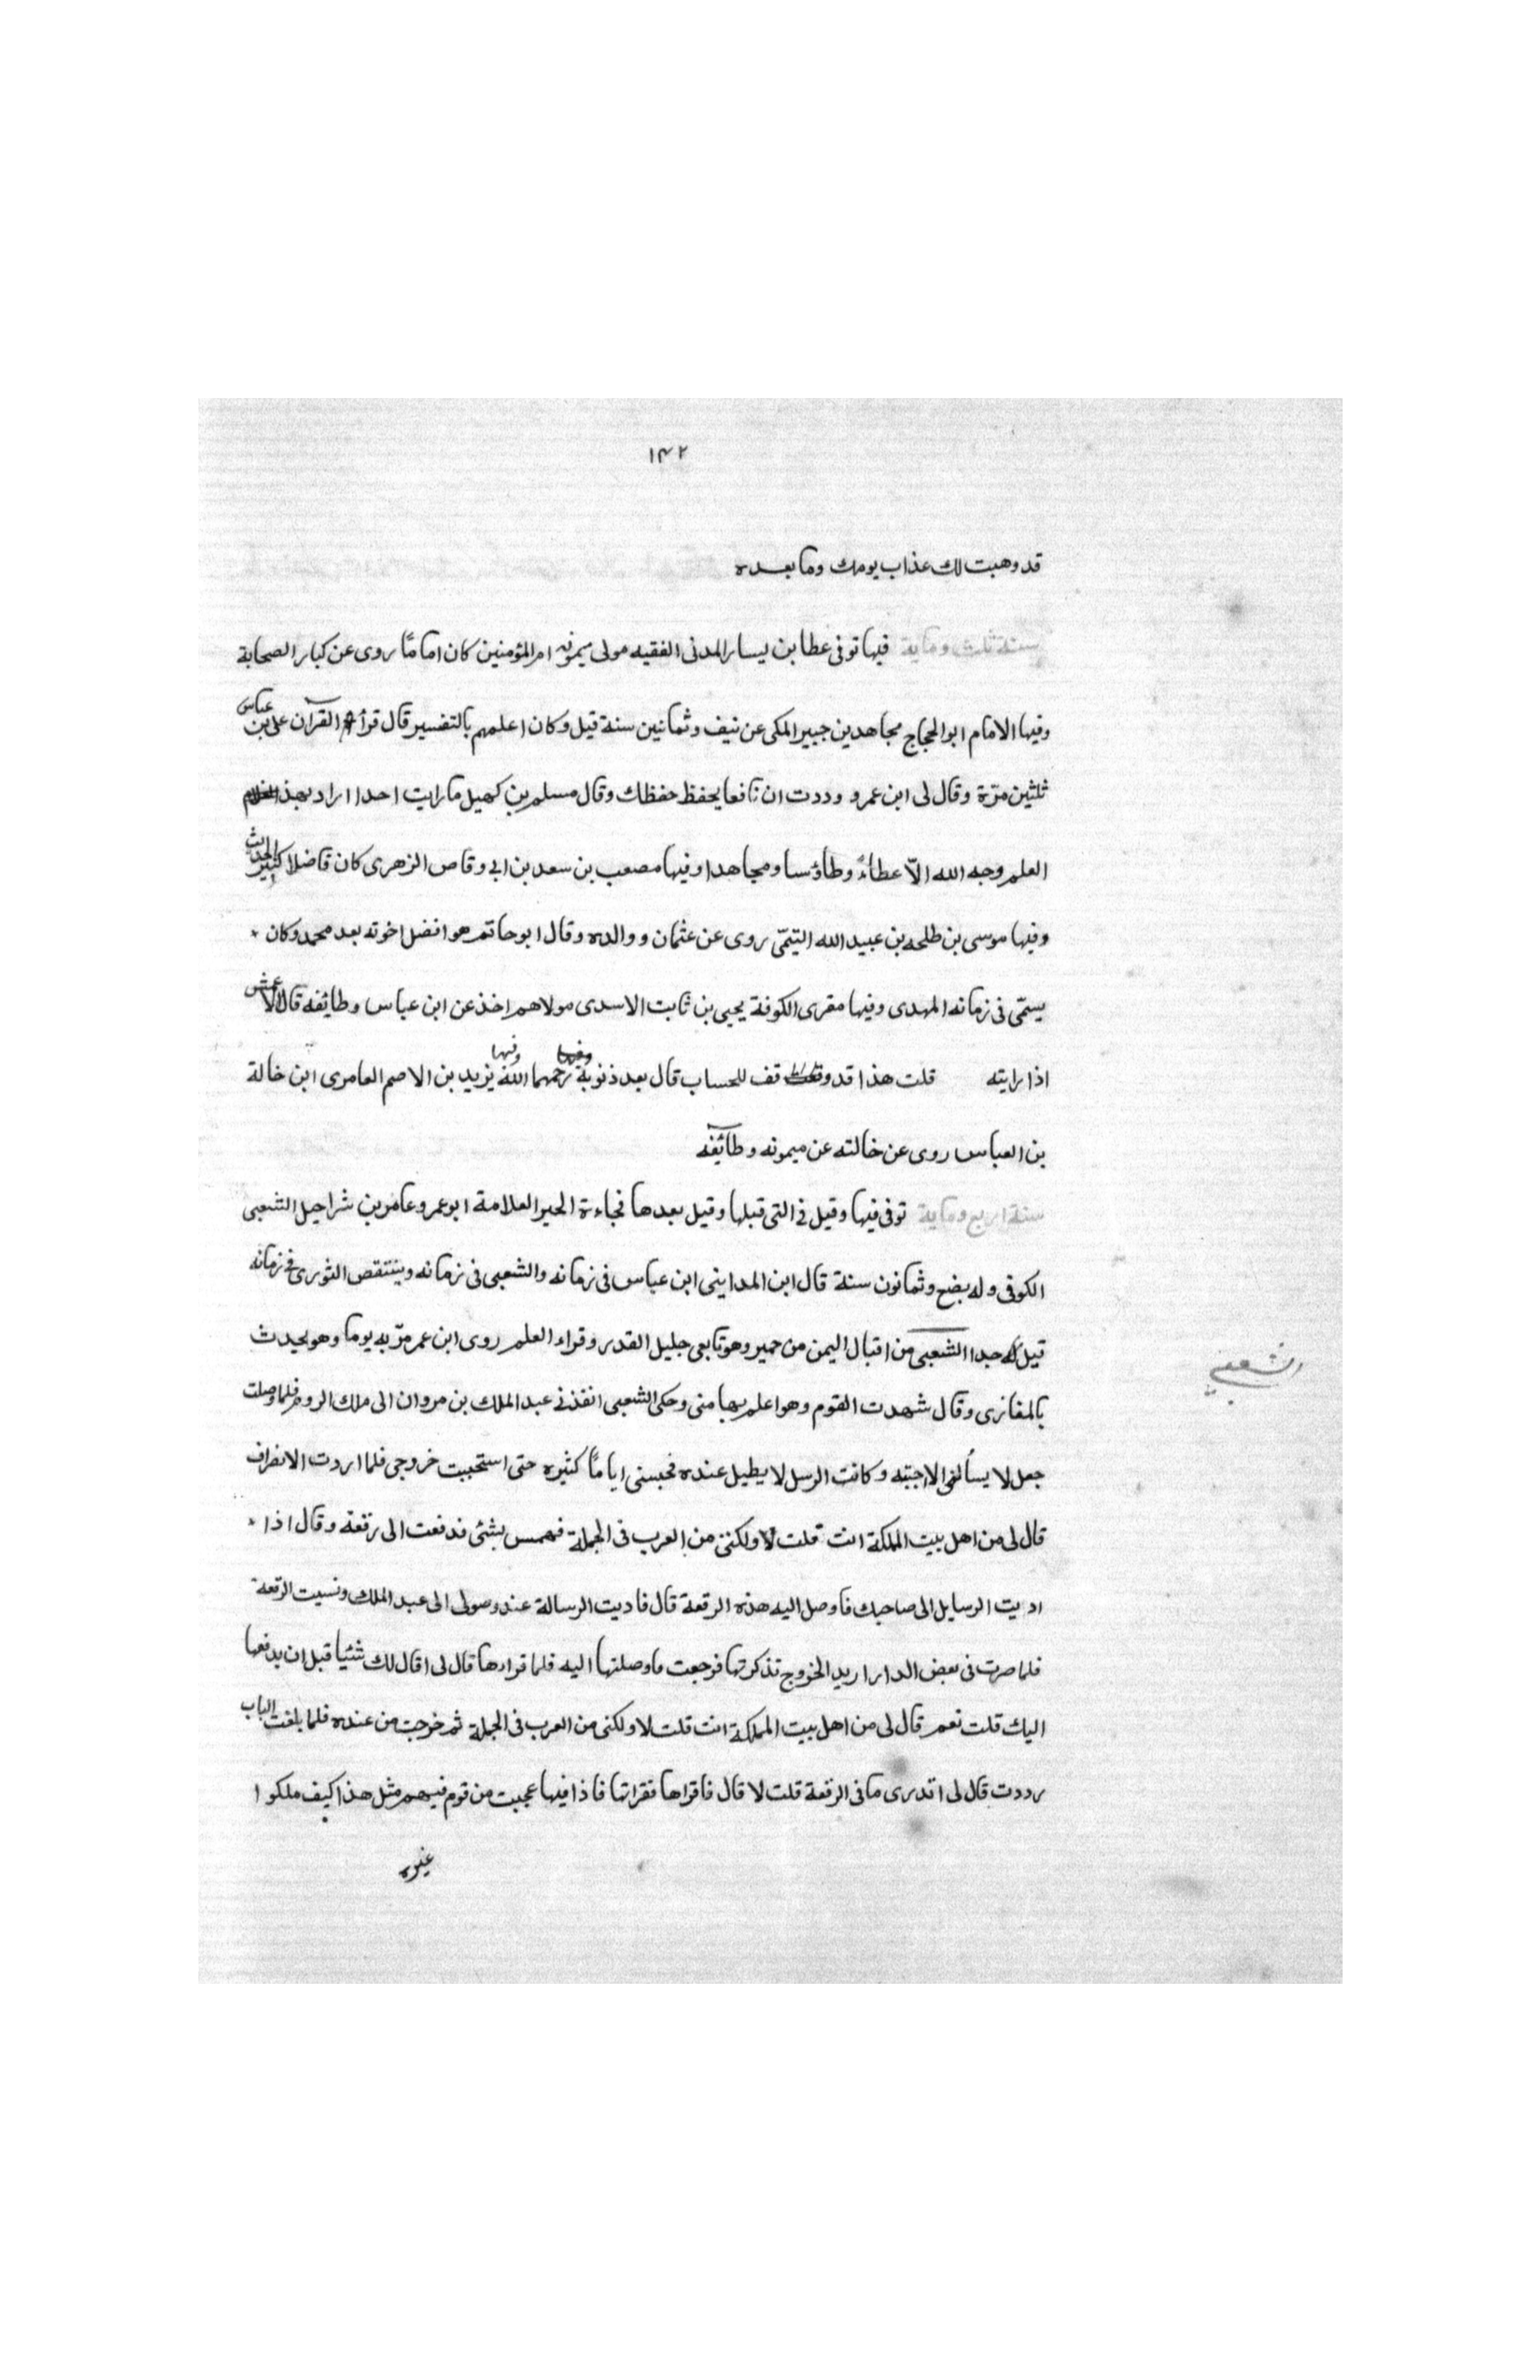 ١٣٢
قد وهبت لك عذاب يومك وما بعده
سنة ثلث وماية فيها توفى عطا بن يسار المدنى الفقيه مولى ميمونه ام المؤمنين كان اماماً روى عن كبار الصحابة
وفيها الامام ابو الحجاج مجاهد بن جبير المكى عن نيف وثمانين سنة قيل وكان اعلمهم بالتفسير قال قرأت القرآن على بن عباس
ثلثين مرّة وقال لى ابن عمرو وددت ان نافعا يحفظ حفظك وقال مسلم بن كهيل ما رايت احدا اراد بهذا
العلم وجه الله الاّ عطاءً وطاؤسا ومجاهدا وفيها مصعب بن سعد بن ابى وقاص الزهرى كان فاضلا كثير الحديث
وفيها موسى بن طلحه بن عبيد الله التيمّى روى عن عثمان ووالده وقال ابو حاتم هو افضل اخوته بعد محمد وكان
يسمّى فى زمانه المهدى وفيها مقرى الكوفة يحيى بن ثابت الاسدى مولاهم اخذ عن ابن عباس وطايفه قال الاعمش
اذا رايته قلت هذا قد وقف للحساب قال بعد ذنوبة رحمهما الله وفيها يزيد بن الاصم العامرى ابن خالة
بن العباس روى عن خالته عن ميمونه وطائفه
سنة اربع وماية توفى فيها وقيل فى التى قبلها وقيل بعدها فجاءة الحبر العلامة ابو عمرو عامر بن شراحيل الشعبى
الكوفى وله بضع وثمانون سنة قال ابن المداينى ابن عباس فى زمانه والشعبى فى زمانه وينتقص الثورى فى زمانه
قيل له جدا الشعبى من اقبال اليمن من حمير وهو تابعى جليل القدر وقراء العلم روى ابن عمر مرّ به يوما وهو يحدث
الشعبي
بالمغازى وقال شهدت القوم وهو اعلم بها منى وحكى الشعبى انفذنى عبد الملك بن مروان الى ملك الروم فلما وصلت
جعل لا يسألنى الا جبته وكانت الرسل لا يطيل عنده فحبسنى اياماً كثيره حتى استحببت خروجى فلما اردت الانصراف
قال لى من اهل بيت المملكة انت قلت لا ولكننى من العرب فى الجملة فهمس بشئ فدفعت الى رقعة وقال اذا
اديت الرسايل الى صاحبك فاوصل اليه هذه الرقعة قال فاديت الرسالة عند وصولى الى عبد الملك ونسيت الرقعة
فلما صرت فى بعض الدار اريد الخروج تذكرتها فرجعت فاوصلتها اليه فلما قراءها قال لى اقال لك شئيا قبل ان يدفعها
اليك قلت نعم قال لى من اهل بيت المملكة انت قلت لا ولكنى من العرب فى الجملة ثم خرجت من عنده فلما بلغت الباب
رددت قال لى اتدرى ما فى الرقعة قلت لا قال فاقراها فقراتها فاذا فيها عجبت من قوم فيهم مثل هذا كيف ملكوا
غيره